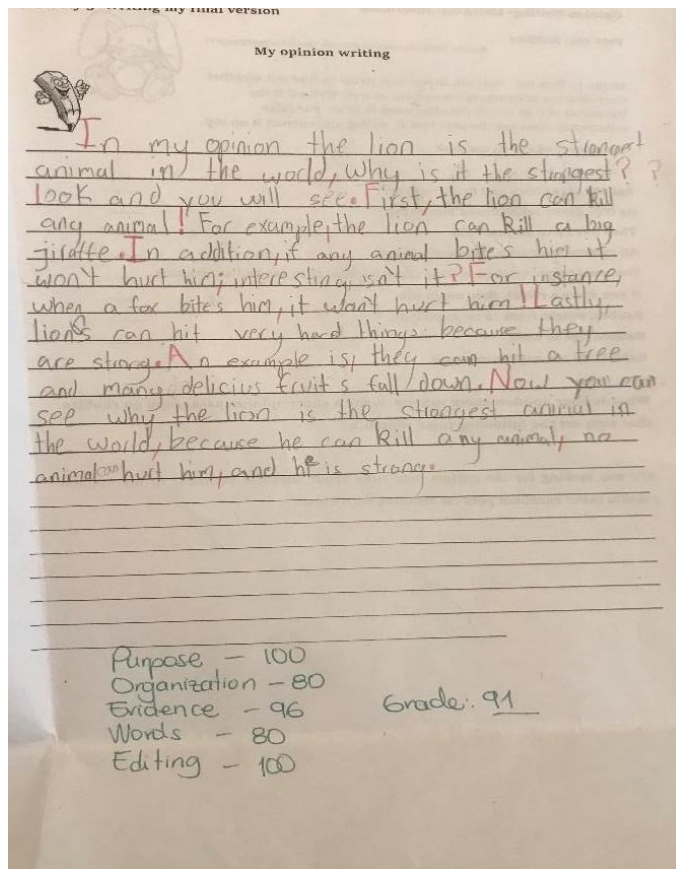 writing my final version
My opinion writing
In my opinion the lion is the strongest
animal in the world, Why is it the strongest? ?
look and you will see. First, the lion can kill
any animal! For example, the lion can kill a big
jiraffe. In addition, if any animal bites him it
won't hurt him; interesting isn't it? For instance,
when a fox bites him, it won't hurt him! Lastly,
lions can hit very hard things because they
are strong. An example is, they can hit a tree
and many delicius fruits fall down. Now you can
see why the lion is the strongest animal in
the world, because he can kill any animal, no
animal can hurt him, and he is strong.
Purpose - 100
Organization - 80
Evidence - 96
Grade: 91
Words - 80
Editing - 100